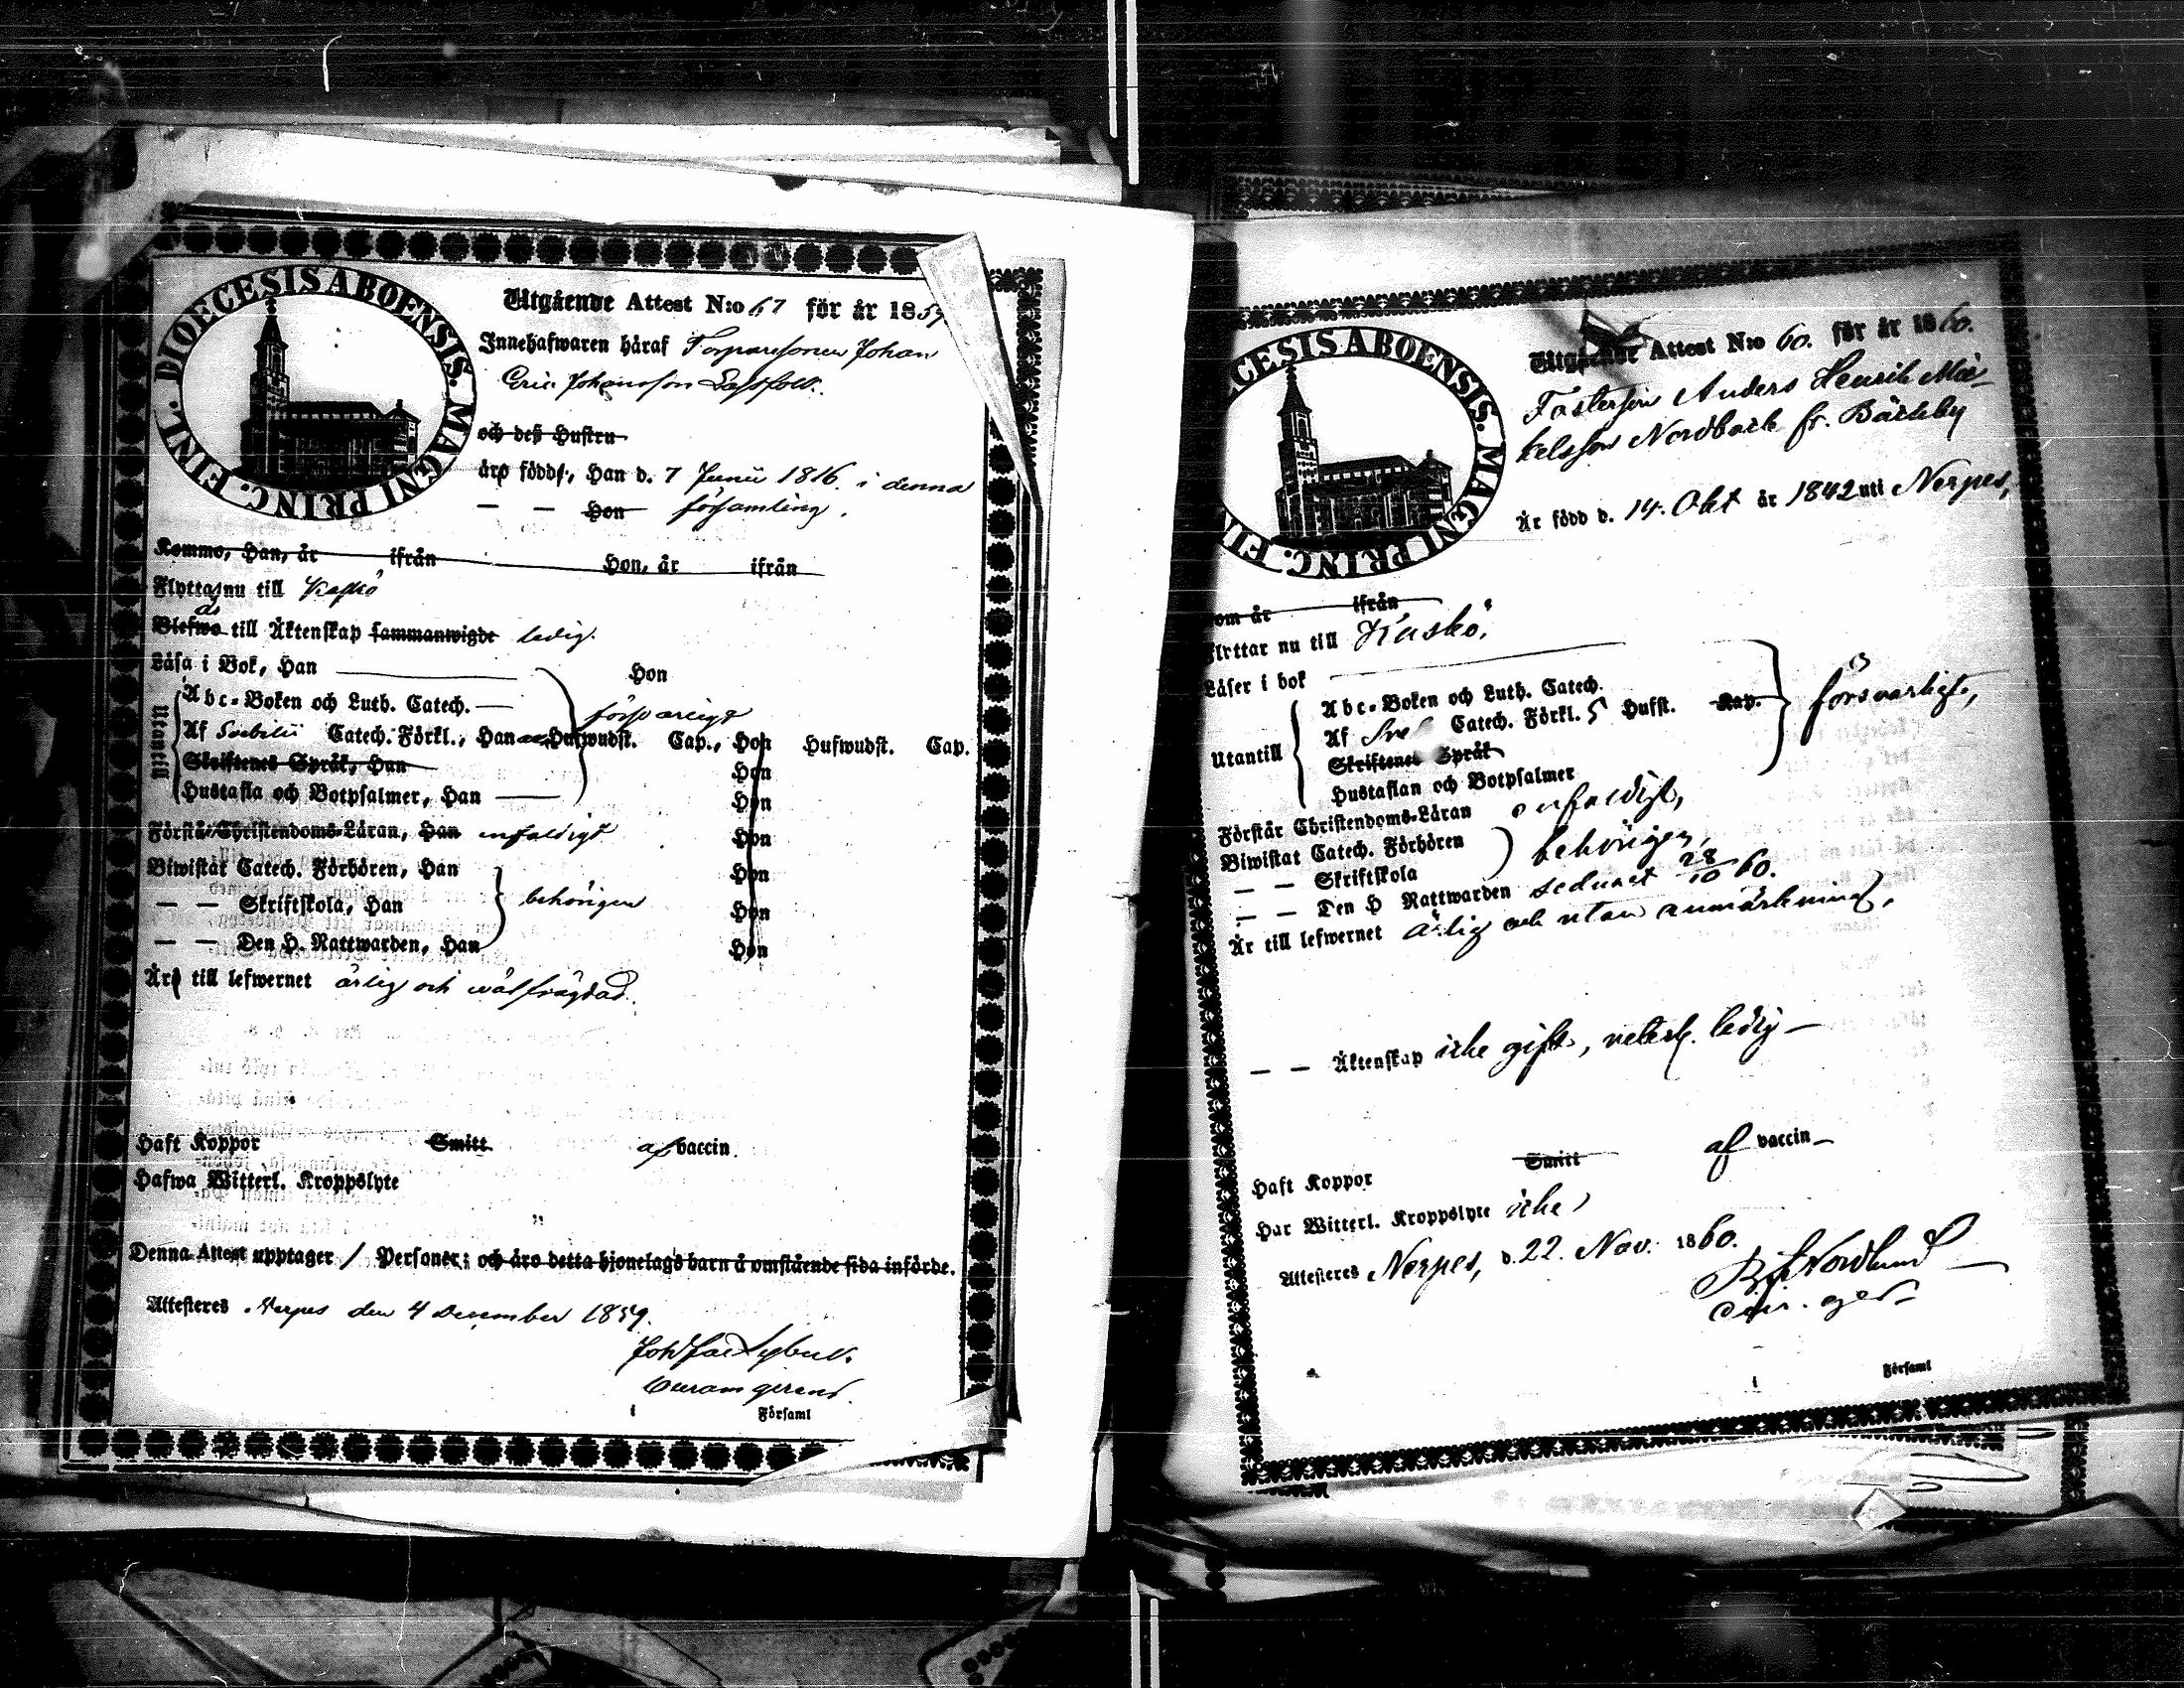 DIOECESIS ABOENSIS. MAGNI PRINC. FINL.
Utgående Attest N:o 67 för år 1859
Innehafwaren häraf Torparesonen Johan
Eric Johansson
och deß Hustru
äro födde, Han d. 7 Junii 1816. i denna
— — Hon församling.
Kommo, Han, år ifrån Hon, år ifrån
Flyttar nu till Kaskö
Blefwo till Äktenskap sammanwigde ledig.
Läsa i Bok, Han Hon
Utantill
Abc-Boken och Luth. Catech. försvarligt
Af Svebilii Catech. Förkl., Han Hufwudst. Cap., Hon Hufwudst. Cap.
Skriftenes Språk, Han Hon
Hustafla och Botpsalmer, Han Hon
Förstå Christendoms-Läran, Han enfaldigt Hon
Biwistat Catech. Förhören, Han Hon
— — Skriftskola, Han behörigen Hon
— — Den H. Nattwarden, Han Hon
Äro till lefwernet ärlig och wälfrägdad.
Haft Koppor Smitt af vaccin.
Hafwa Witterl. Kroppslyte
Denna Attest upptager / Personer; och äro detta hjonelags barn å omstående sida införde.
Attesteres Nerpes den 4 December 1859.
Curam gerens.
i Församl
DIOECESIS ABOENSIS. MAGNI PRINC. FINL.
Utgående Attest N:o 60. för år 1860.
Fostersön Anders Henrik Mic-
kelsson Nordback fr. Bäckby
Är född d. 14. Okt år 1842 uti Nerpes,
Kom år ifrån
Flyttar nu till Kaskö.
Läser i bok
Utantill
Abc-Boken och Luth. Catech.
Af Sve Catech. Förkl. 5 Hufst. Kap. försvarligt,
Skriftenes Språk
Hustaflan och Botpsalmer
Förstår Christendoms-Läran enfaldigt,
Biwistat Catech. Förhören behörigen,
— — Skriftskola
— — Den H Nattwarden sednast 28/10 60.
Är till lefwernet ärlig och utan anmärkning,
— — Äktenskap icke gift, ledig —
Haft Koppor Smitt af vaccin —
Har Witterl. Kroppslyte icke,
Attesteres Nerpes, d. 22. Nov. 1860.
Nordlund
i Församl